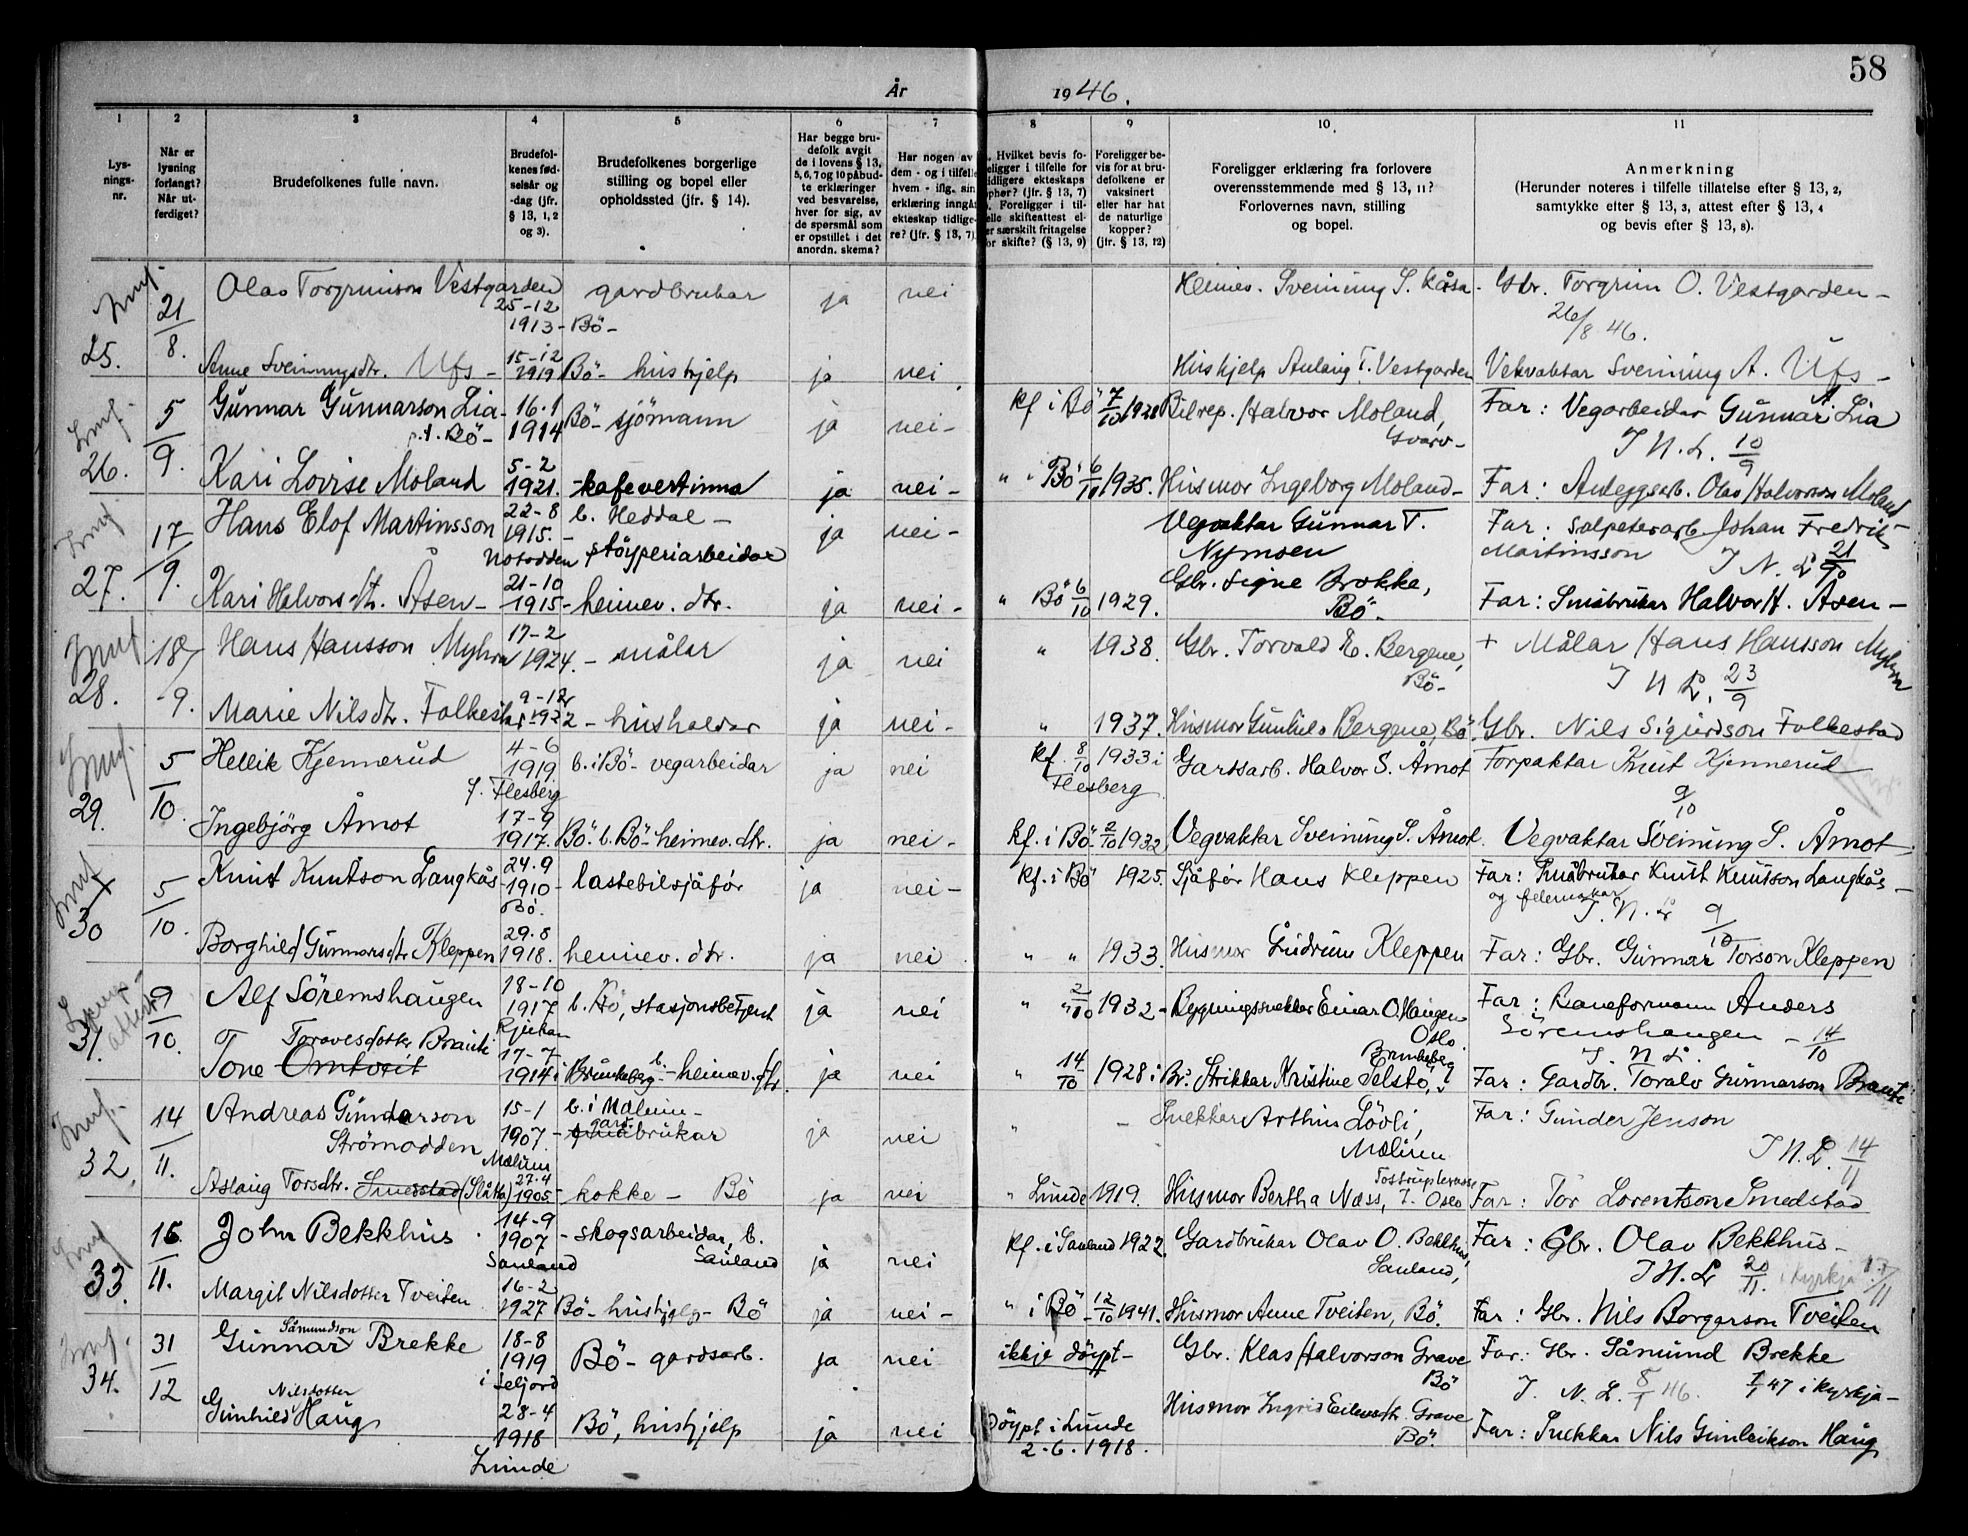 58
År 1946.
1 2 3 4 5 6 7 8 9 10 11
Lysnings-nr.
Når er lysning forlangt? Når utferdiget?
Brudefolkenes fulle navn.
Brudefolkenes fødselsår og -dag (jfr. § 13, 1, 2 og 3).
Brudefolkenes borgerlige stilling og bopel eller opholdssted (jfr. § 14).
Har begge brudefolk avgitt de i lovens § 13, 5, 6, 7 og 10 påbudte erklæringer ved besvarelse, hver for sig, av de spørsmål som er opstillet i det anordn. skema?
Har nogen av dem - og i tilfelle hvem - iflg. sin erklæring inngått ekteskap tidligere? (jfr. § 13, 7).
Hvilket bevis foreligger i tilfelle for tidligere ekteskaps ophør? (jfr. § 13, 7) Foreligger i tilfelle skifteattest eller særskilt fritagelse for skifte? (§ 13, 9)
Foreligger bevis for at brudefolkene er vaksinert eller har hatt de naturlige kopper? (jfr. § 13, 12)
Foreligger erklæring fra forlovere overensstemmende med § 13, 11? Forlovernes navn, stilling og bopel.
Anmerkning (Herunder noteres i tilfelle tillatelse efter § 13, 2, samtykke efter § 13, 3, attest efter § 13, 4 og bevis efter § 13, 8).
25. 21/8. Olav Torgrimson Vestgarden 25-12 1913 - gardbrukar Bö - ja nei Sveinung S. Kåsa - Gbr. Torgrim O. Vestgarden -
26/8 46.
Anne Sveinungsdtr. Ufs - 15-12 1919 Bö - hushjelp ja nei Hushjelp Aslaug T. Vestgarden Sveinung A. Ufs -
26. 5/9. Gunnar Gunnarson Lia - 16.1 1914 Bö - sjömann ja nei - kf i Bö 7/10 1928 Bilrep. Halvor Moland, Far: Vegarbeidar Gunnar A. Lia
f. Bö - I N. L. 10/9
Kari Lovise Moland 5-2 1921. - kafevertinna ja nei - " i Bö 6/10 1935. Husmor Ingeborg Moland - Far: Anleggsarb. Olav Halvorson Moland
27. 17/9. Hans Elof Martinsson 22-8 1915. - b. Heddal - ja nei - Vegvaktar Gunnar T. Nymoen Far: Salpeterarb. Johan Fredrik Martinsson
Notodden støyperiarbeidar I N. L 21/9
Kari Halvorsdtr. Åsen - 21-10 1915 - heimev. dtr. ja nei - " Bö 6/10 1929. Gbr. Signe Brokke, Bö - Far: Småbrukar Halvor H. Åsen -
28. 18/9. Hans Hansson Myhra 17-2 1924. - målar ja nei " 1938. Gbr. Torvald H. Bergene, Bö - + Målar Hans Hansson Myhra
I N L. 23/9
Marie Nilsdtr. Folkestad 9-12 1922 - hushaldar ja nei - " 1937. Husmor Gunhild Bergene, Bö Gbr. Nils Sigurdson Folkestad
29. 5/10. Hellik Kjennerud 4-6 1919 b. i Bö - vegarbeidar ja nei kf. 8/10 1933 i Flesberg Gardsarb. Halvor S. Åmot Forpaktar Knut Kjennerud
f. Flesberg 9/10
Ingebjörg Åmot 17-9 1917. Bö. b. Bö - heimev. dtr. ja nei - kf. i Bö - 2/10 1932 Vegvaktar Sveinung S. Åmot. Vegvaktar Sveinung S. Åmot.
30 5/10. Knut Knutson Langkås 24.9 1910 - Bö. lastebilsjåför ja nei - kf. i Bö 1925. Sjåför Hans Kleppen Far: Småbrukar Knut Knutson Langkås -
og felemakar I. N. L 9/10
Borghild Gunnarsdtr Kleppen 29.8 1918. heimev. dtr. ja nei " " 1933. Husmor Gudrun Kleppen Far: Gbr. Gunnar Torson Kleppen
31. 9/10. Alf Söremshaugen 18-10 1917 Rjukan b. Bö, stasjonsbetjent ja nei " " 2/10 1932 - Bygningssnekkar Einar O. Haugen Oslo. Far: Baneformann Anders Söremshaugen - 14/10
I. N L.
Tone Toravsdotter Brauti Omtveit 17-7 1914 i Brunkeberg - b. heimev. dtr. ja nei " 14/10 1928 i Br. Strikkar Kristine Selstö, Brunkeberg Far: Gardbr. Torav Gunnarson Brauti
32. 14/11. Andreas Gunderson Strömodden 15-1 1907 - Mælum b. i Mælum - gard småbrukar ja nei " - Snekkar Arthur Lövli, Mælum Far: Gunder Jenson
I N. L. 14/11
Aslaug Torsdtr. Smedstad (Slåtta) 27-4 1905 - kokke - Bö ja nei " Lunde 1919. Husmor Bertha Næss, Oslo Far: Tor Lorentson Smedstad
33. 15/11. John Bekkhus 14-9 1907 Sauland - skogsarbeidar, b. Sauland ja nei kf. i Sauland 1922. Gardbrukar Olav O. Bekkhus, Sauland, Far: Gbr. Olav Bekkhus -
I N. L 20/11. i kyrkja 
Margit Nilsdotter Tveiten 16-2 1927 Bö - hushjelp - Bö ja nei - " i Bö - 12/10 1941. Husmor Anne Tveiten, Bö. Far: Gbr. Nils Borgarson Tveiten
34. 31/12 Gunnar Såmundson Brekke 18-8 1919 i Seljord Bö - gardsarb. ja nei ikkje döypt - Gbr. Klas Halvorson Grave Bö Far: Gbr. Såmund Brekke
I. N. L. 8/1 46. 47 i kyrkja -
Gunhild Nilsdotter Haug 28-4 1918 Lunde Bö, hushjelp ja nei Döypt i Lunde 2-6.1918. Husmor Ingrid Grave Bö. Far: Snekkar Nils Gunleikson Haug